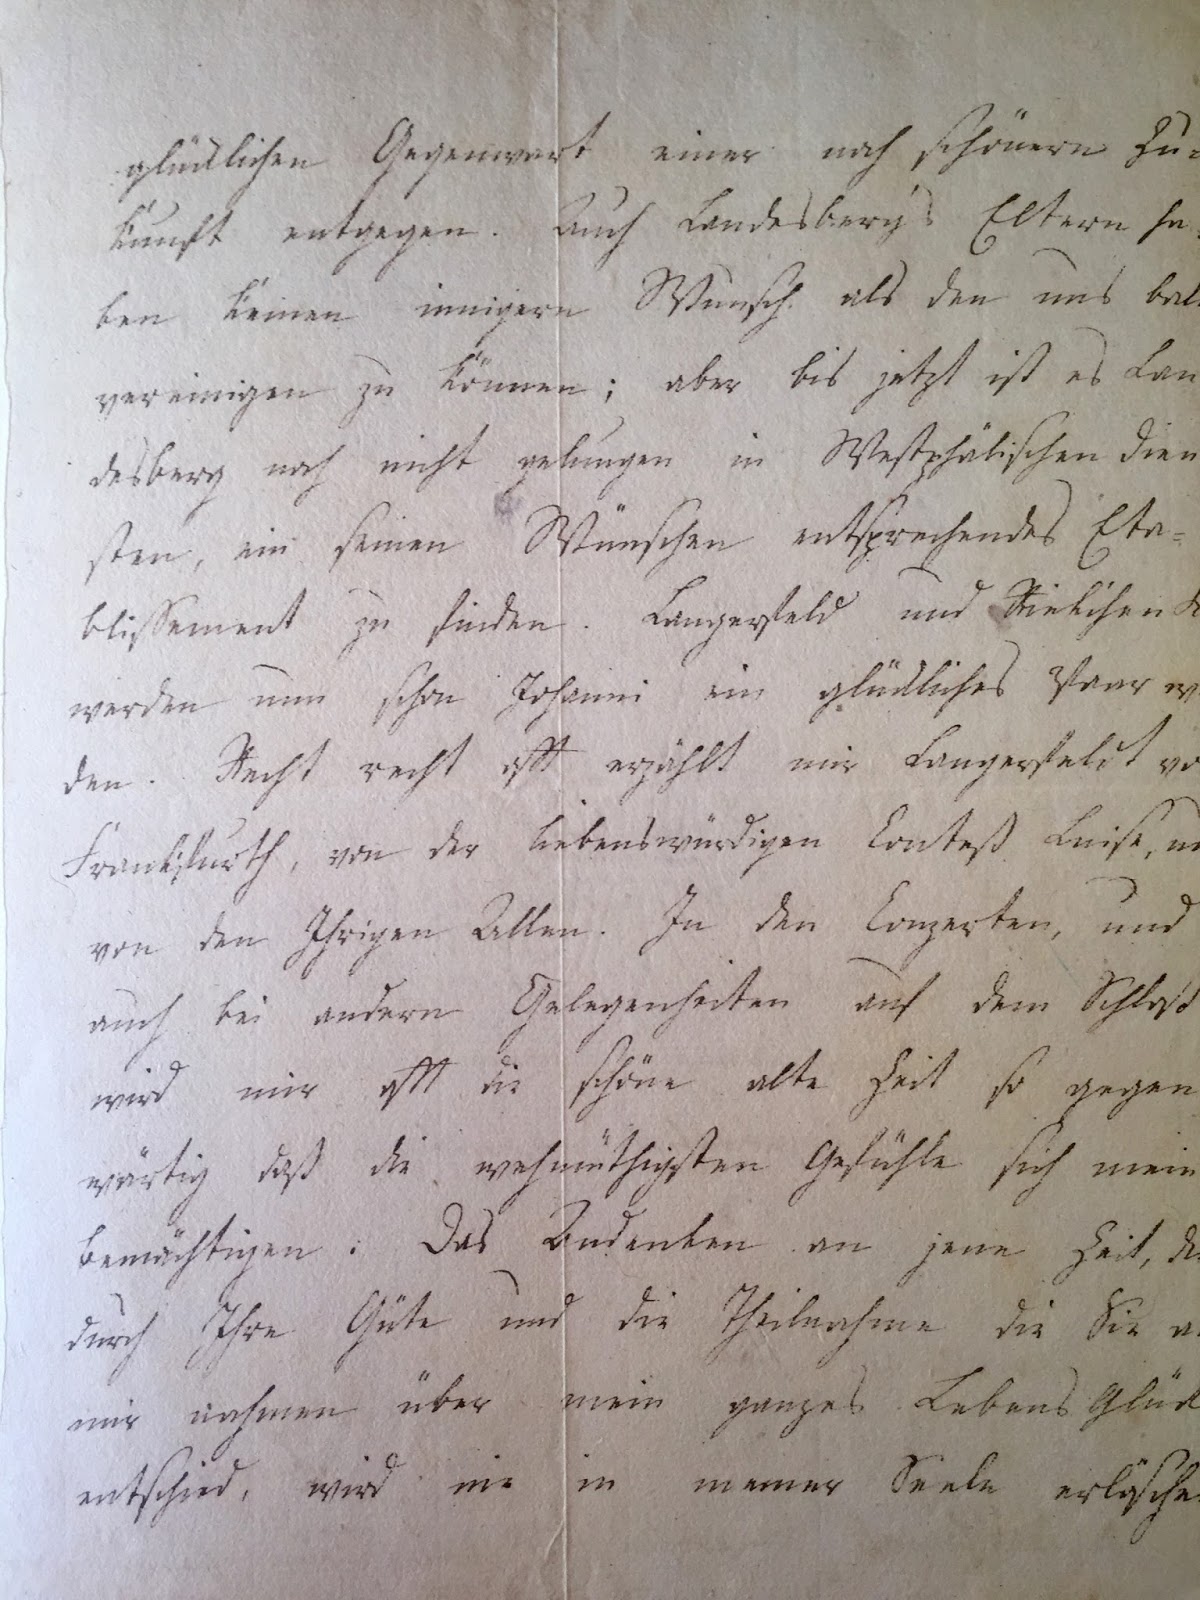 glücklichen Gegenwart einer noch schönern Zu=
kunft entgegen. Auch Landesberg's Eltern ha=
ben keinen innigern Wunsch als den uns bal
vereinigen zu können; aber bis jetzt ist es Lan
desberg noch nicht gelungen in Westphälischen Dien
sten, ein seinen Wünschen entsprechendes Eta=
blissement zu finden. Langerfeld und
werden nun schon Johanni ein glückliches Paar w
den. Recht recht oft erzählt mir Langerfeldt vo
Frankfurth, von der liebenswürdigen Conteß Luise, un
von den Ihrigen Allen. In den Conzerten, und
auch bei andern Gelegenheiten auf dem Schloß
wird mir oft die schöne alte Zeit so gegen
wärtig daß die wehmüthigsten Gefühle sich mein
bemächtigen: Das Andenken an jene Zeit, di
durch Ihre Güte und die Theilnahme die Sie an
mir nahmen über mein ganzes Lebens Glück
entschied, wird nie in meiner Seele erlösche